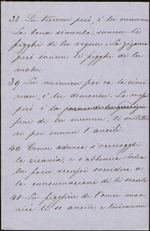 38 Lu terrenu però, è lu munnu.
La bona simenta sunnu li
figghi di lu regnu. La zizania
però sunnu li figghi di lu
malu.
39 Lu nimicu poi ca la simi-
nau, è lu demoniu. La messi
però è la
di lu munnu. li
poi sunnu l'ancili
40 Comu adunca s'arricogghi
la zizania, e s'abbrucia
focu accussì succedi a
la consumazioni di lu seculu
41 Lu figghiu di l'omu man-
nirà li so ancili, e